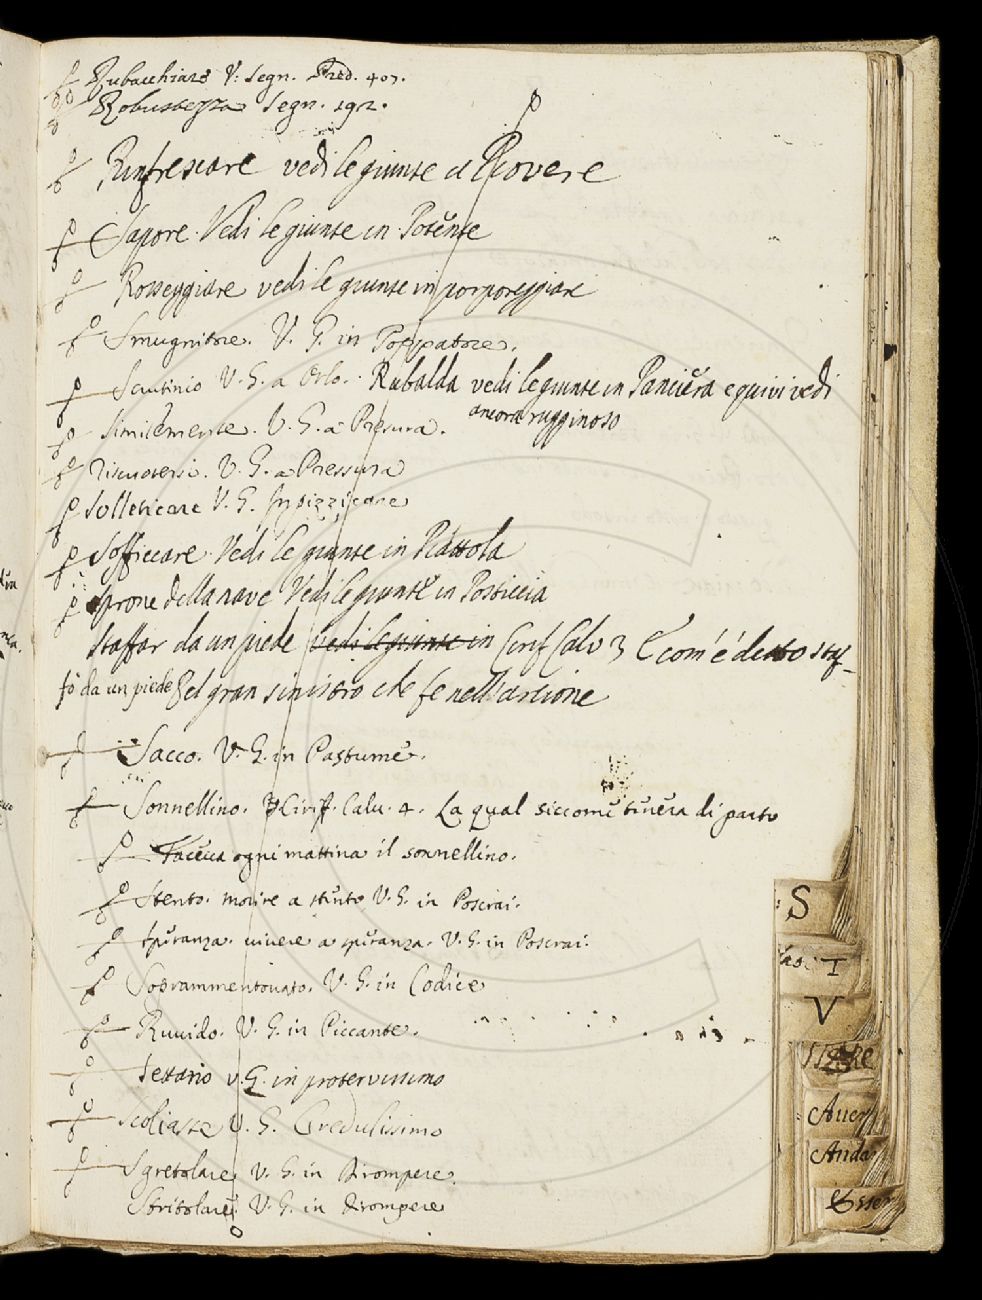 Rubacchiare V. Segn. Pred. 407.
Robustezza Segn. 192.
Rinfrescare vedi le giunte a Piovere
Sapore. Vedi le giunte in Potente
Rosseggiare vedi le giunte in porporeggiare
Smugnitore. V. G. in Poppatore.
Scutinio V. G. a Orlo. Rubalda vedi le giunte in Panciera e quivi vedi
ancora rugginoso
Similemente. V. G. a Presura.
Riscuotersi. V. G. a Pressura
Solleticare V. G. Inzizzicare
Sofficcare. Vedi le giunte in Piattola
Sprone della nave Vedi le giunte in Posticcia
Staffar da un piede vedi le giunte in Cirif Calv 3 E com' é detto staf-
fò da un piede Pel gran sinistro che fe nell'arcione
Sacco. V. G. in Pastume.
Sonnellino. Cirif. Calv. 4. La qual siccome s'era di parto
Faceva ogni mattina il sonnellino.
Stento. morire a stento V. G. in Poscrai.
Speranza. vivere a speranza. V. G. in Poscrai.
Soprammentovato. V. G. in Codice
Ruvido. V. G. in Piccante.
Settario v. G. in protervissimo
Scoliaste V. G. Credulissimo
Sgretolare V. G. in dirompere.
Stritolare V. G. in dirompere
S
T
V
Aver
Anda
Esser